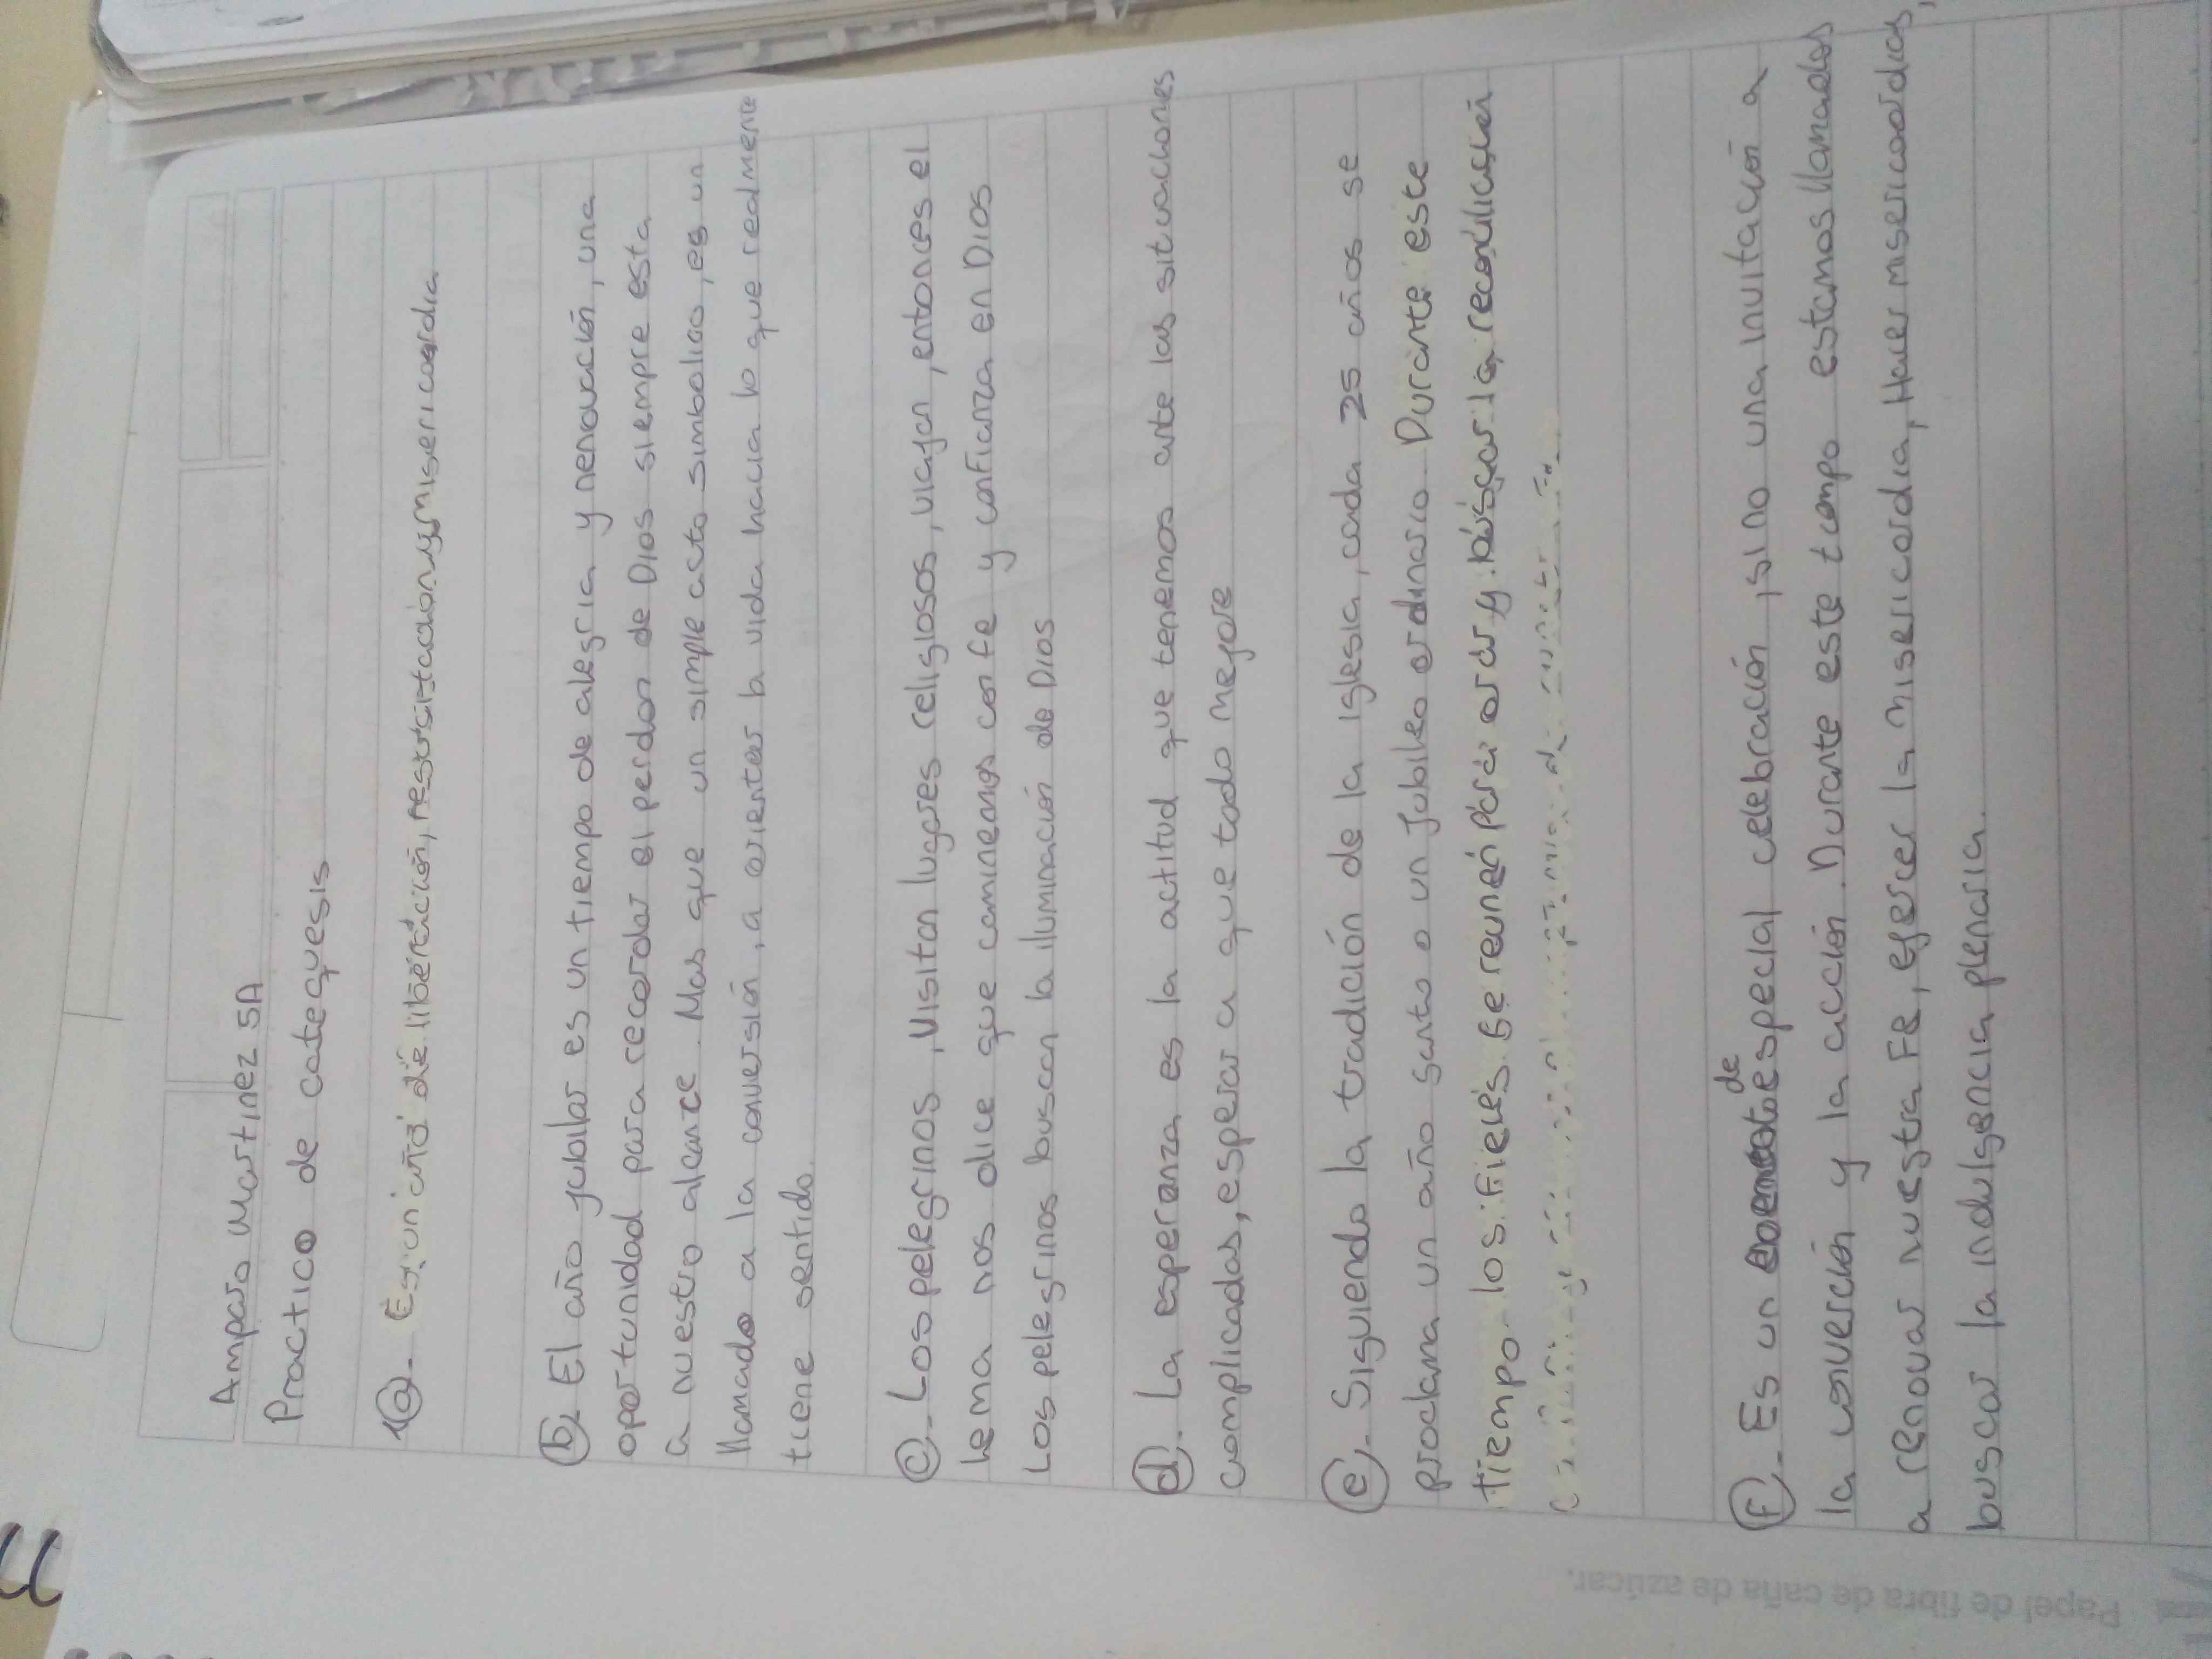 Amparo Martinez 5A
Practico de catequesis
1(a)- Es un año de liberación, resucitación y misericordia
(b)- El año jubilar es un tiempo de alegria y renovación, una
oportunidad para recordar el perdon de Dios siempre esta
a nuestro alcance. Mas que un simple acto simbolico, es un
llamado a la conversión, a orientar la vida hacia lo que realmente
tiene sentido.
(c)- Los pelegrinos, visitan lugares religiosos, viajan, entonces el
lema nos dice que caminemos con fe y confianza en Dios
Los pelegrinos buscan la iluminación de Dios
(d)- La esperanza es la actitud que tenemos ante las situaciones
complicadas, esperar a que todo mejore
(e)- Siguiendo la tradición de la iglesia, cada 25 años se
proclama un año santo o un Jubileo ordinario. Durante este
tiempo los fieles se reunen para orar y buscar la reconciliación
(f)- Es un de especial celebración, sino una invitación a
la converción y la acción. Durante este tempo estamos llamados
a renovar nuestra Fe, ejercer la misericordia, Hacer misericordias,
buscar la indulgencia plenaria.
Papel de fibra de caña de azúcar.